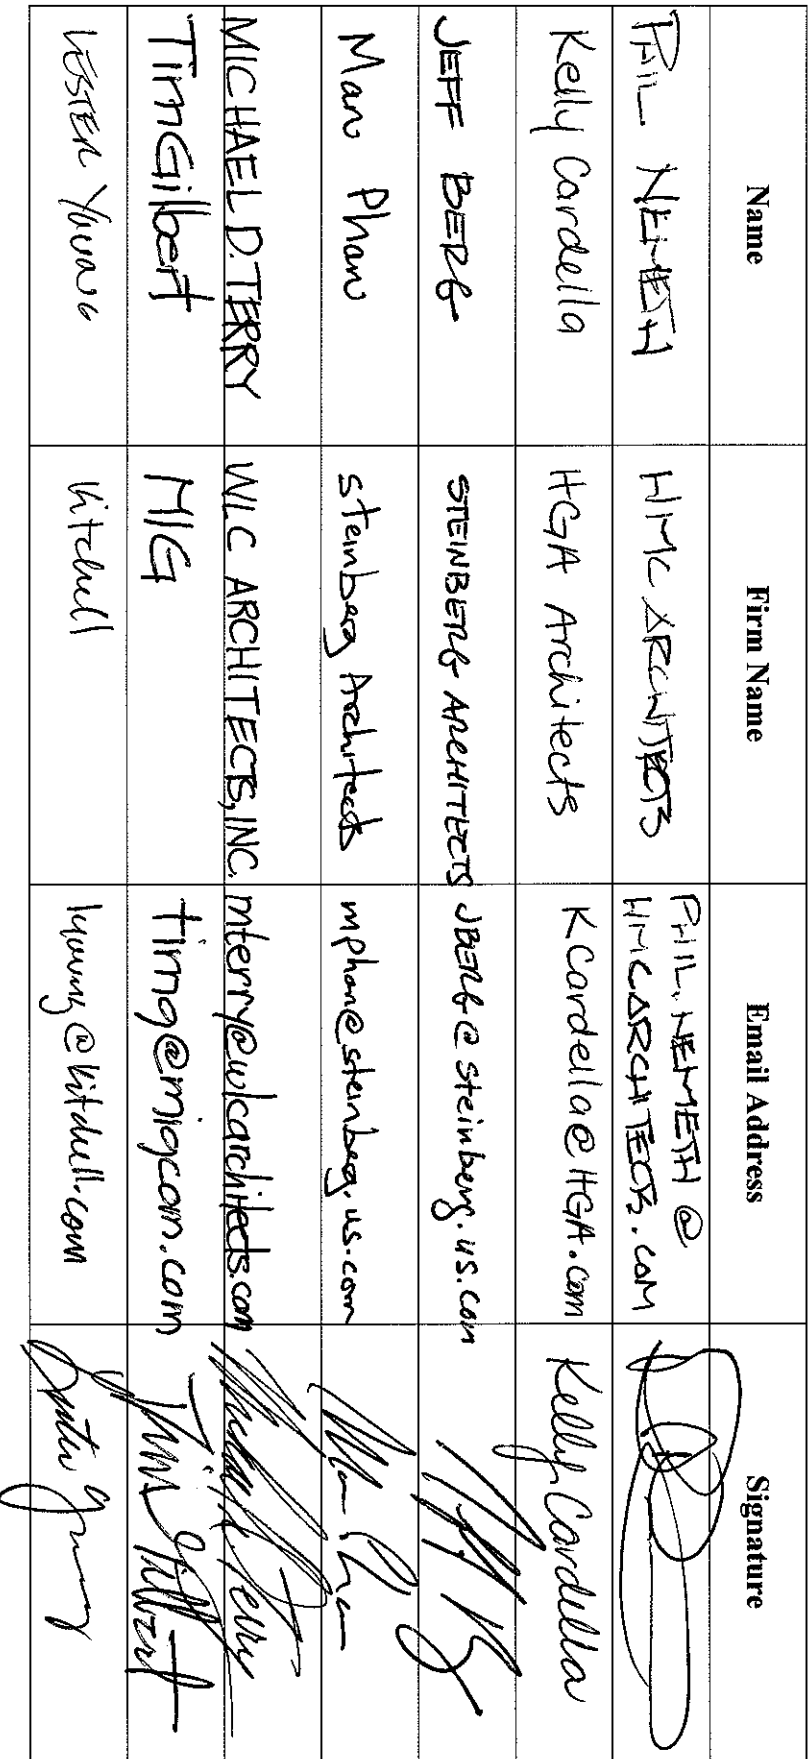 Name Firm Name Email Address Signature
PHIL NEMETH HMC ARCHITECTS PHIL.NEMETH@
HMCARCHITECTS.COM
Kelly Cardella HGA Architects KCardella@HGA.com Kelly Cardella
JEFF BERG STEINBERG ARCHITECTS JBERG@steinberg.us.com
Man Phan Steinberg Architects mphan@steinberg.us.com Man Phan
MICHAEL D. TERRY WLC ARCHITECTS, INC. mterry@wlcarchitects.com Michael D. Terry
Tim Gilbert MIG timg@migcom.com Tim Gilbert
LESTER YOUNG Kitchell lyoung@kitchell.com Lester Young